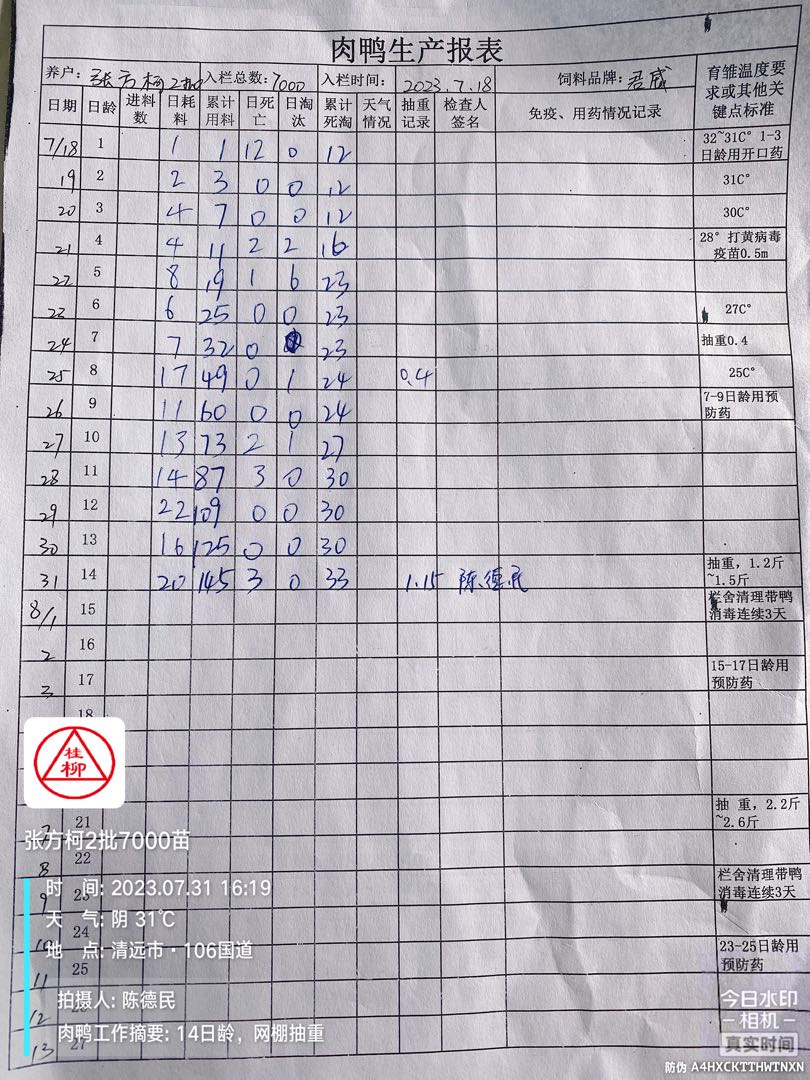 肉鸭生产报表
养户: 张方柯2批 入栏总数: 7000 入栏时间: 2023.7.18 饲料品牌: 君威 育雏温度要求或其他关键点标准
日期 日龄 进料数 日耗料 累计用料 日死亡 日淘汰 累计死淘 天气情况 抽重记录 检查人签名 免疫、用药情况记录
7/18 1 1 1 12 0 12 32~31C° 1-3日龄用开口药
19 2 2 3 0 0 12 31C°
20 3 4 7 0 0 12 30C°
21 4 4 11 2 2 16 28° 打黄病毒疫苗0.5m
22 5 8 19 1 6 23
23 6 6 25 0 0 23 27C°
24 7 7 32 0 23 抽重0.4
25 8 17 49 0 1 24 0.4 25C°
26 9 11 60 0 0 24 7-9日龄用预防药
27 10 13 73 2 1 27
28 11 14 87 3 0 30
29 12 22 109 0 0 30
30 13 16 125 0 0 30
31 14 20 145 3 0 33 1.15 陈德民 抽重，1.2斤~1.5斤
8/1 15 栏舍清理带鸭消毒连续3天
2 16
3 17 15-17日龄用预防药
18
桂柳
7 21 抽 重，2.2斤~2.6斤
张方柯2批7000苗
8 22
9 23 栏舍清理带鸭消毒连续3天
时 间: 2023.07.31 16:19
天 气: 阴 31℃
10 24 23-25日龄用预防药
地 点: 清远市·106国道
11 25
12
拍摄人: 陈德民
13 27
肉鸭工作摘要: 14日龄，网棚抽重
今日水印
-相机-
真实时间
防伪 A4HXCKTTHWTNXN